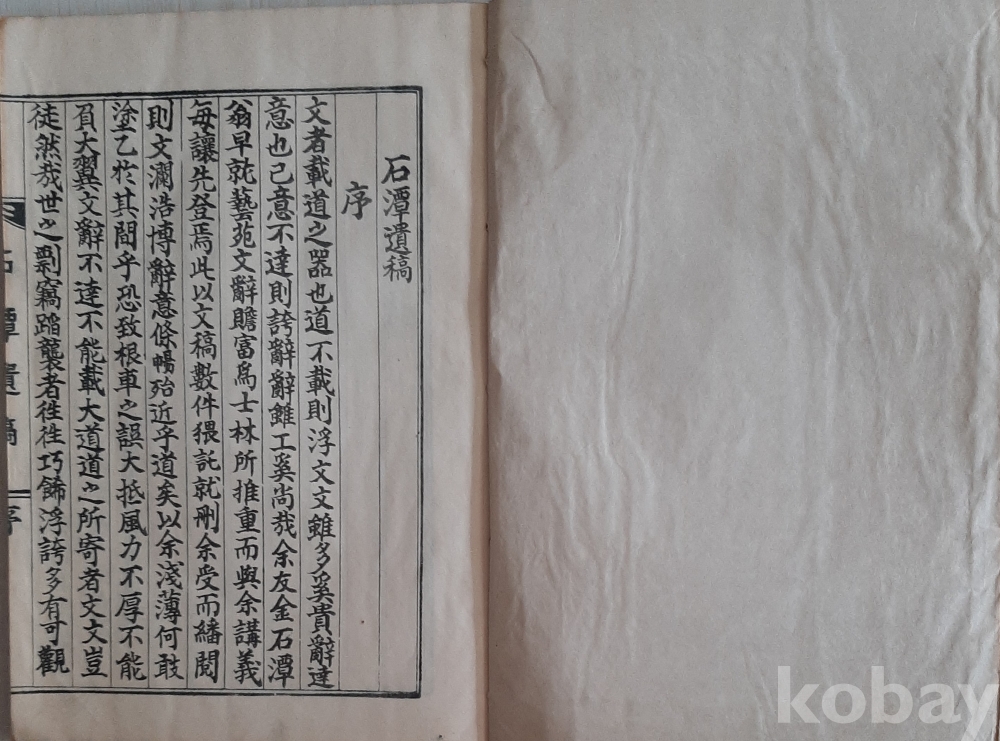 石潭遺稿
序
文者載道之器也道不載則浮文文雖多奚貴辭達
意也己意不達則誇辭辭雖工奚尚哉余友金石潭
翁早就藝苑文辭贍富爲士林所推重而與余講義
每讓先登焉此以文稿數件猥託就刪余受而繙閱
則文瀾浩博辭意條暢殆近乎道矣以余淺薄何敢
塗乙於其間乎恐致根車之誤大抵風力不厚不能
負大翼文辭不達不能載大道道之所寄者文文豈
徒然哉世之剽竊蹈襲者徃徃巧餙浮誇多有可觀
石潭遺稿
序
kobay